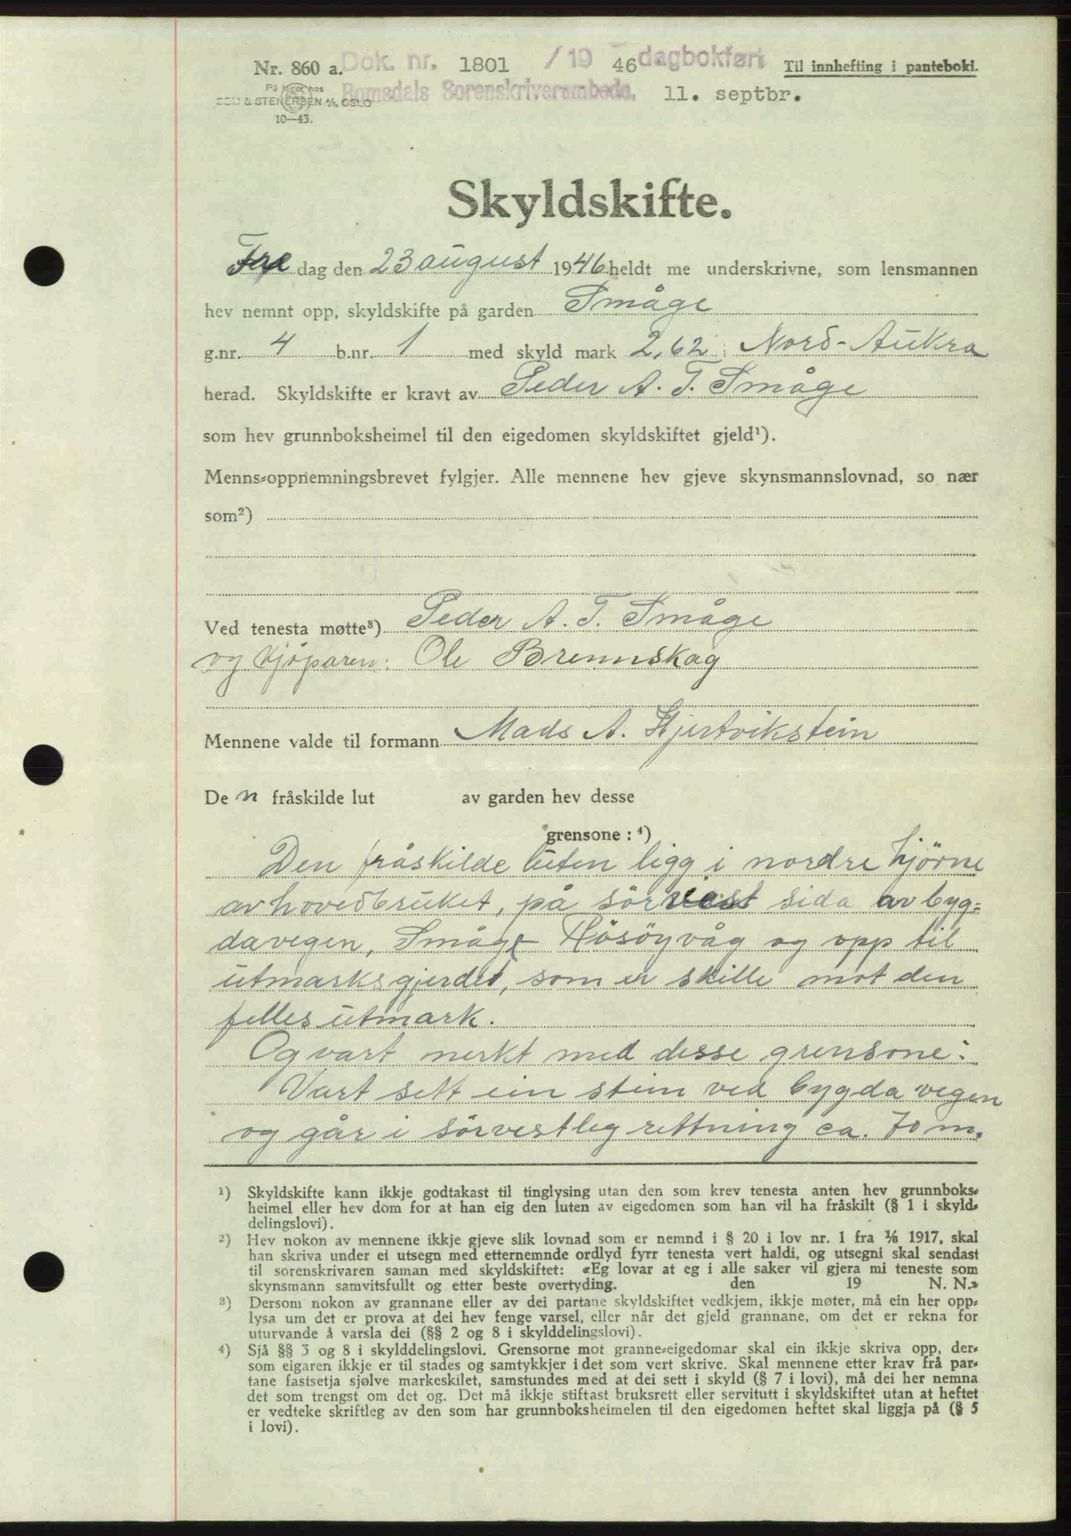 Nr. 860 a. Dok. nr. 1801 / 19 46 dagbokført Til innhefting i panteboki.
Romsdals Sorenskriverembede. 11. septbr.
På lager hos
& STENERSEN A/S, OSLO
10—43.
Skyldskifte.
Fre dag den 23 august 1946 heldt me underskrivne, som lensmannen
hev nemnt opp, skyldskifte på garden Småge
g.nr. 4 b.nr. 1 med skyld mark 2,62 i Nord-Aukra
herad. Skyldskifte er kravt av Peder A. T. Småge
som hev grunnboksheimel til den eigedomen skyldskiftet gjeld¹).
Menns-oppnemningsbrevet fylgjer. Alle mennene hev gjeve skynsmannslovnad, so nær
som²)
Ved tenesta møtte³) Peder A. T. Småge
og Kjøparen: Ole Brennskag
Mennene valde til formann Mads A. Hjertvikstein
De n fråskilde lut av garden hev desse
grensone: ⁴)
Den fråskilde luten ligg i nordre hjörne
av hovedbruket, på sörvest sida av byg=
davegen, Småge Rösöyvåg og opp til
utmarksgjerdet, som er skille mot den
felles utmark.
Og vart merkt med desse grensone:
Vart sett ein stein ved bygda vegen
og går i sörvestleg rettning ca. 70 m.
¹) Skyldskifte kann ikkje godtakast til tinglysing utan den som krev tenesta anten hev grunnboks-
heimel eller hev dom for at han eig den luten av eigedomen som han vil ha fråskilt (§ 1 i skyld-
delingslovi).
²) Hev nokon av mennene ikkje gjeve slik lovnad som er nemnd i § 20 i lov nr. 1 fra 1/6 1917, skal
han skriva under ei utsegn med etternemnde ordlyd fyrr tenesta vert haldi, og utsegni skal sendast
til sorenskrivaren saman med skyldskiftet: «Eg lovar at eg i alle saker vil gjera mi teneste som
skynsmann samvitsfullt og etter beste overtyding. den 19 N. N.»
³) Dersom nokon av grannane eller av dei partane skyldskiftet vedkjem, ikkje møter, må ein her opp-
lysa um det er prova at dei hev fenge varsel, eller når det gjeld grannane, om det er rekna for
uturvande å varsla dei (§§ 2 og 8 i skylddelingslovi).
⁴) Sjå §§ 3 og 8 i skylddelingslovi. Grensorne mot granne-eigedomar skal ein ikkje skriva opp, der-
som eigaren ikkje er til stades og samtykkjer i det som vert skrive. Skal mennene etter krav frå par-
tane fastsetja sjølve markeskilet, samstundes med at dei sett i skyld (§ 7 i lovi), må dei her nemna
det som trengst om det og. Det må ikkje stiftast bruksrett eller servitutt i skyldskiftet utan at heftet
er vedteke skriftleg av den som har grunnboksheimelen til den eigedomen heftet skal liggja på (§ 5
i lovi).